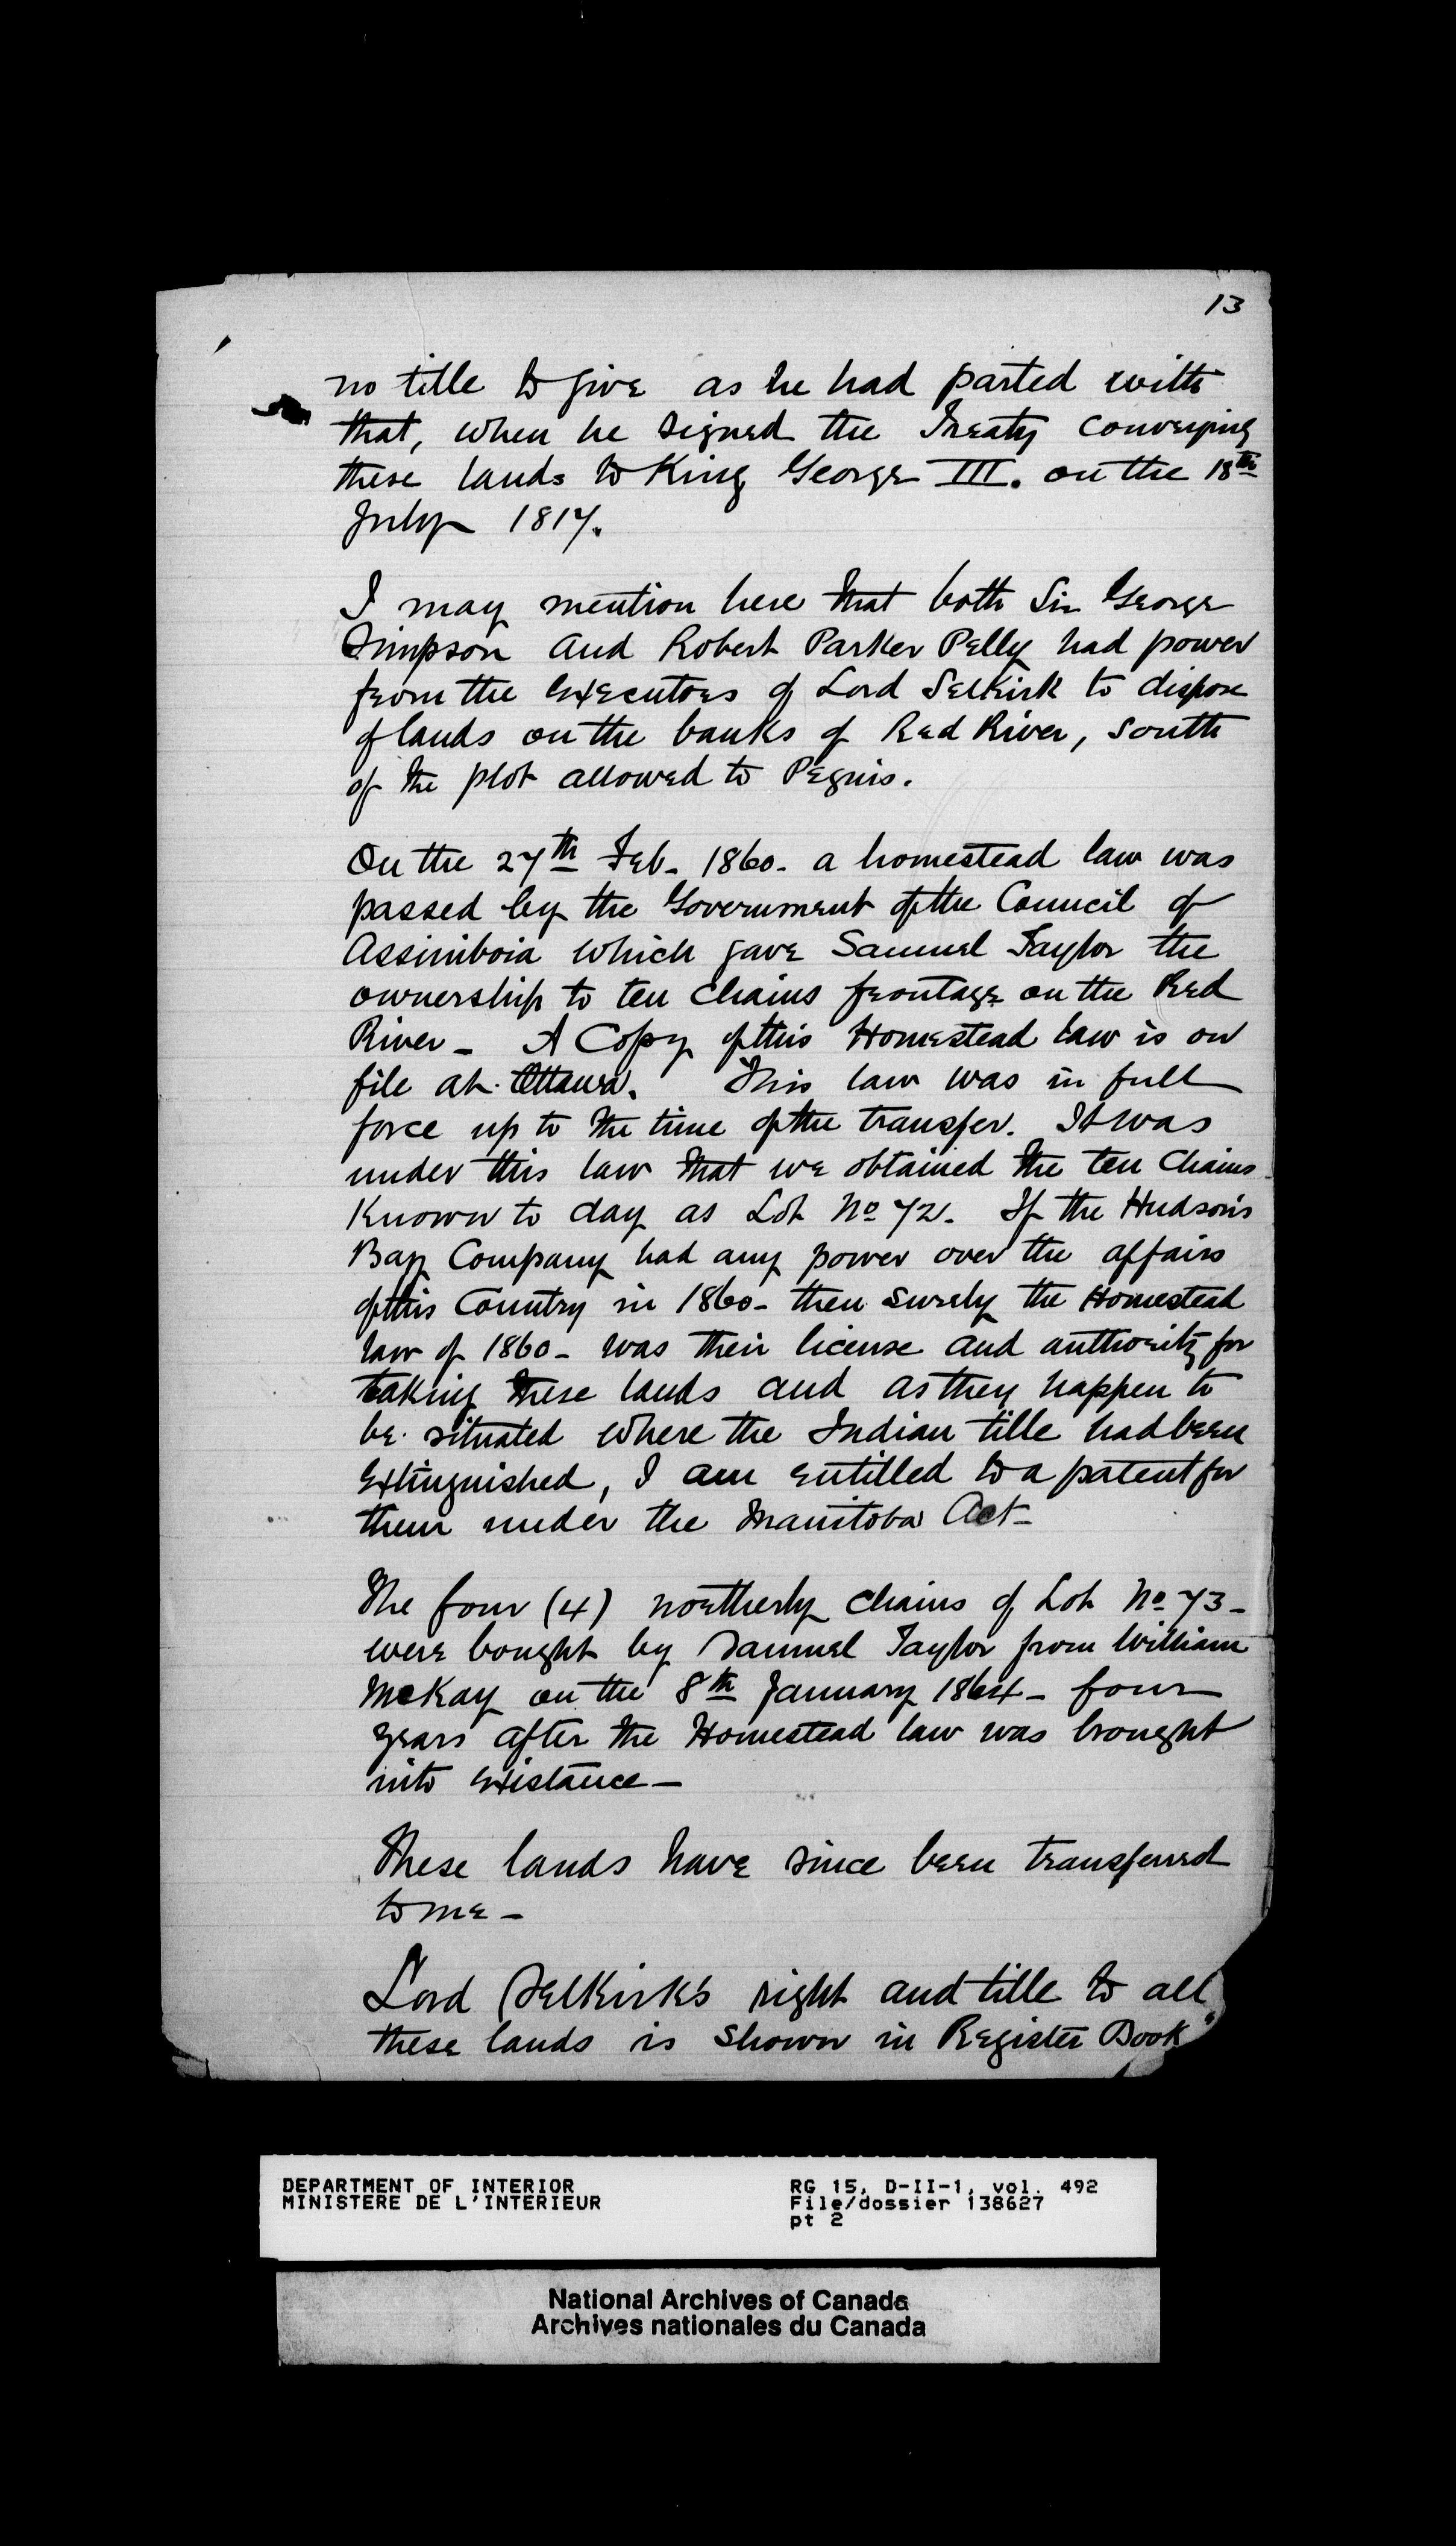 13
no title to give as he had parted with
that, when he signed the Treaty conveying
these lands to King George III. on the 18th
July 1817.
I may mention here that both Sir George
Simpson and Robert Parker Pelly had power
from the Executors of Lord Selkirk to dispose
of lands on the banks of Red River, south
of the plot allowed to Peguis.
On the 27th Feb. 1860 - a homestead law was
passed by the Government of the Council of
Assiniboia which gave Samuel Taylor the
ownership to ten chains frontage on the Red
River - A Copy of this Homestead law is on
file at Ottawa. This law was in full
force up to the time of the transfer. It was
under this law that we obtained the ten Chains
Known to day as Lot No 72. If the Hudson's
Bay Company had any power over the affairs
of this Country in 1860 - then surely the Homestead
law of 1860 - was their license and authority for
taking these lands and as they happen to
be situated where the Indian title had been
extinguished, I am entitled to a patent for
them under the Manitoba Act -
The four (4) northerly chains of Lot No 73 -
were bought by Samuel Taylor from William
McKay on the 8th January 1864 - four
years after the Homestead law was brought
into existance -
These lands have since been transferred
to me -
Lord Selkirk's right and title to all
these lands is shown in Register Book "
DEPARTMENT OF INTERIOR
MINISTERE DE L'INTERIEUR
RG 15, D-II-1, vol. 492
File/dossier 138627
pt 2
National Archives of Canada
Archives nationales du Canada